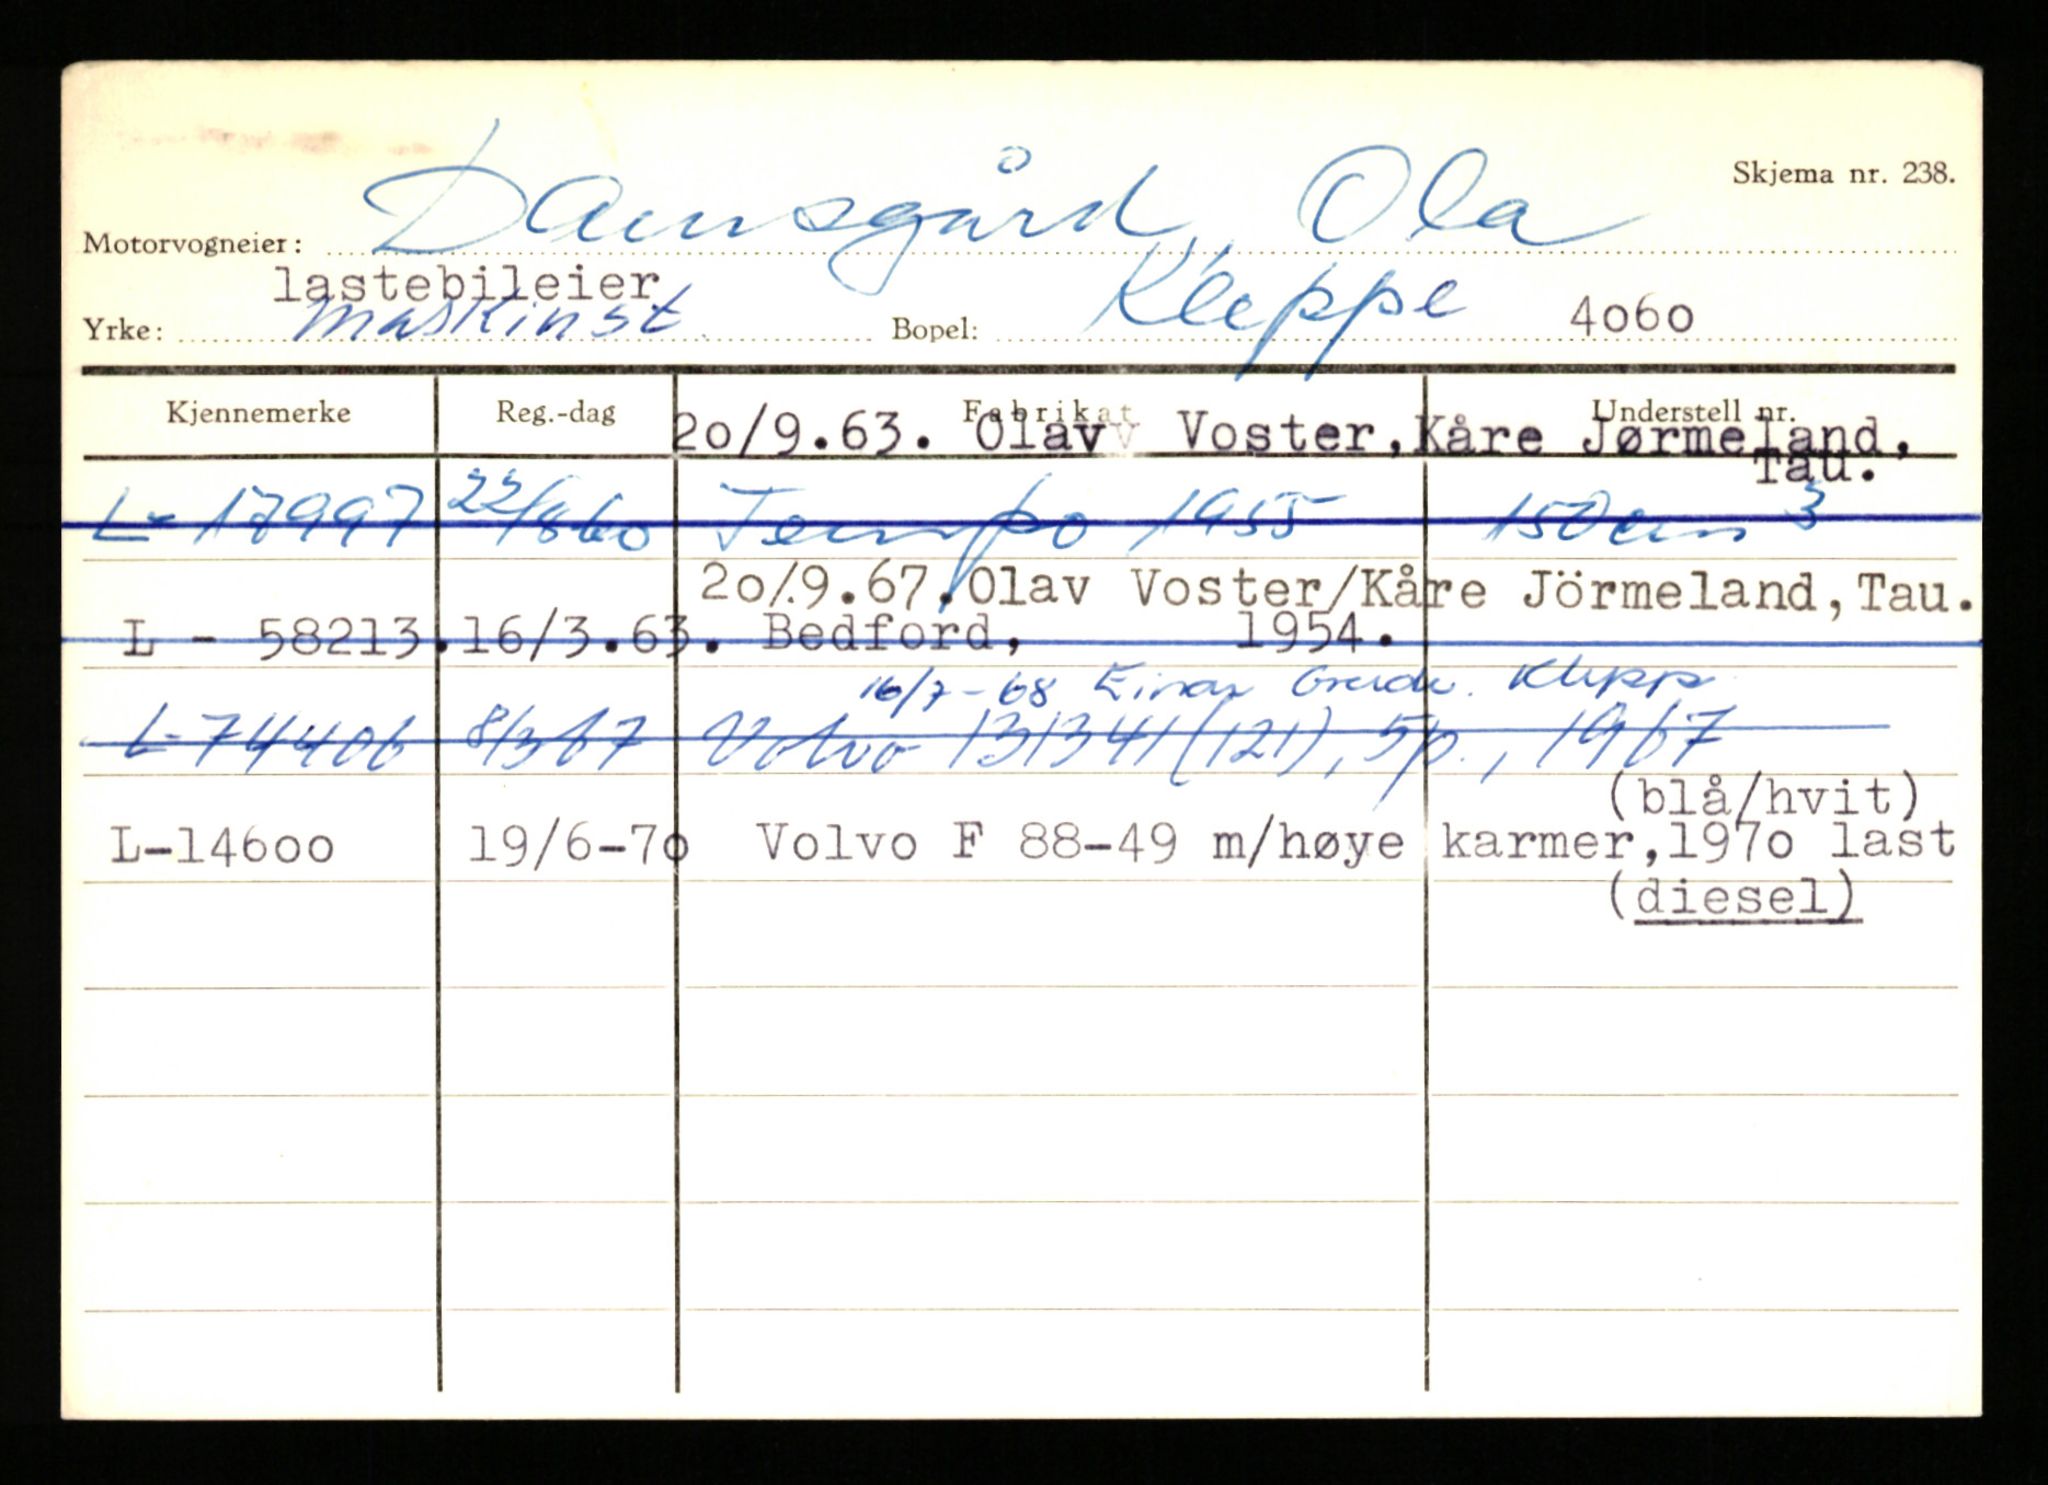 Skjema nr. 238.
Motorvogneier: Damsgård, Ola
lastebileier
Yrke: maskinst. Bopel: Kleppe 4060
Kjennemerke Reg.-dag Fabrikat Understell nr.
20/9.63. Olav Voster, Kåre Jørmeland,
Tau.
L- 17997 22/8 60 Tempo 1955 150 cm3
20/.9.67.Olav Voster/Kåre Jörmeland, Tau.
L - 58213. 16/3.63. Bedford, 1954.
16/7-68 Einar Klepp
L-74406 8/3 67 Volvo 131341 (121), 5p., 1967
(blå/hvit)
L-14600 19/6-70 Volvo F 88-49 m/høye karmer,1970 last
(diesel)